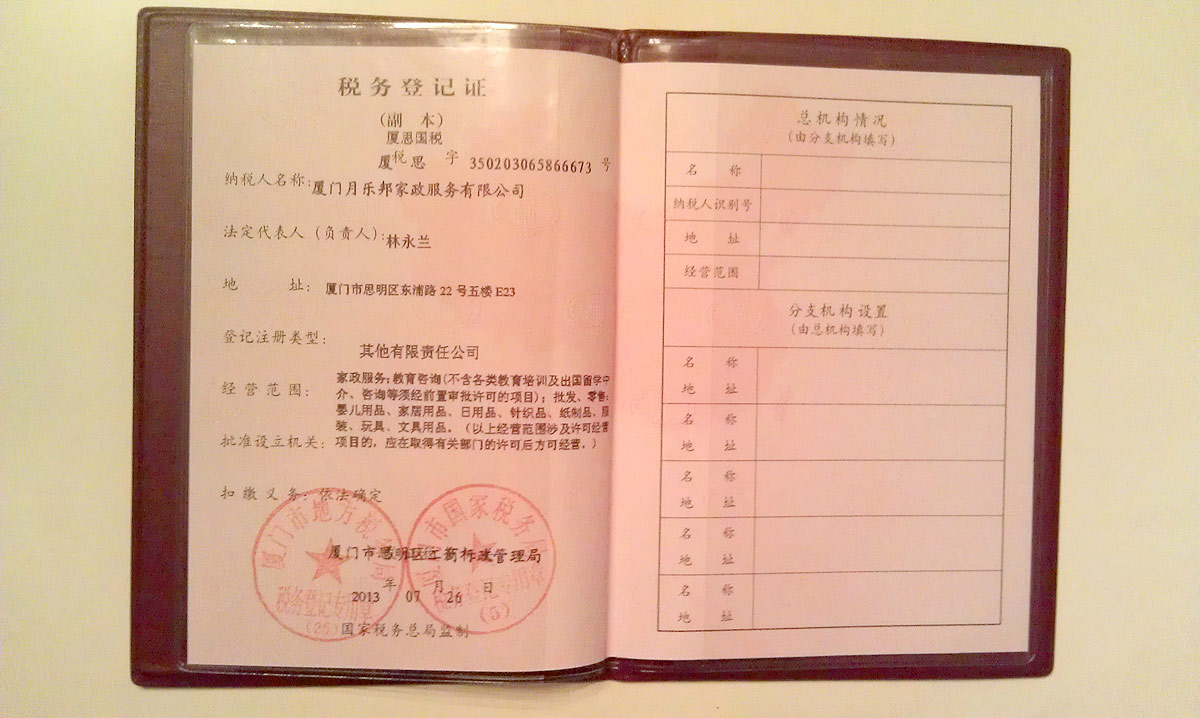 税务登记证
(副 本)
厦思国税
厦税思 字 350203065866673 号
纳税人名称:厦门月乐邦家政服务有限公司
法定代表人(负责人):林永兰
地 址: 厦门市思明区东浦路 22 号五楼 E23
登记注册类型:其他有限责任公司
经营范围:
家政服务;教育咨询(不含各类教育培训及出国留学中
介、咨询等须经前置审批许可的项目);批发、零售:
婴儿用品、家居用品、日用品、针织品、纸制品、服
装、玩具、文具用品。(以上经营范围涉及许可经营
项目的,应在取得有关部门的许可后方可经营。)
批准设立机关:
扣缴义务:依法确定
厦门市地方税 局
税务登记专用章
(25)
厦门市国家税务局
税务登记专用章
(5)
厦门市思明区工商行政管理局
2013 年 07 月 26 日
国家税务总局监制
总机构情况
(由分支机构填写)
名 称
纳税人识别号
地 址
经营范围
分支机构设置
(由总机构填写)
名 称
地 址
名 称
地 址
名 称
地 址
名 称
地 址
名 称
地 址